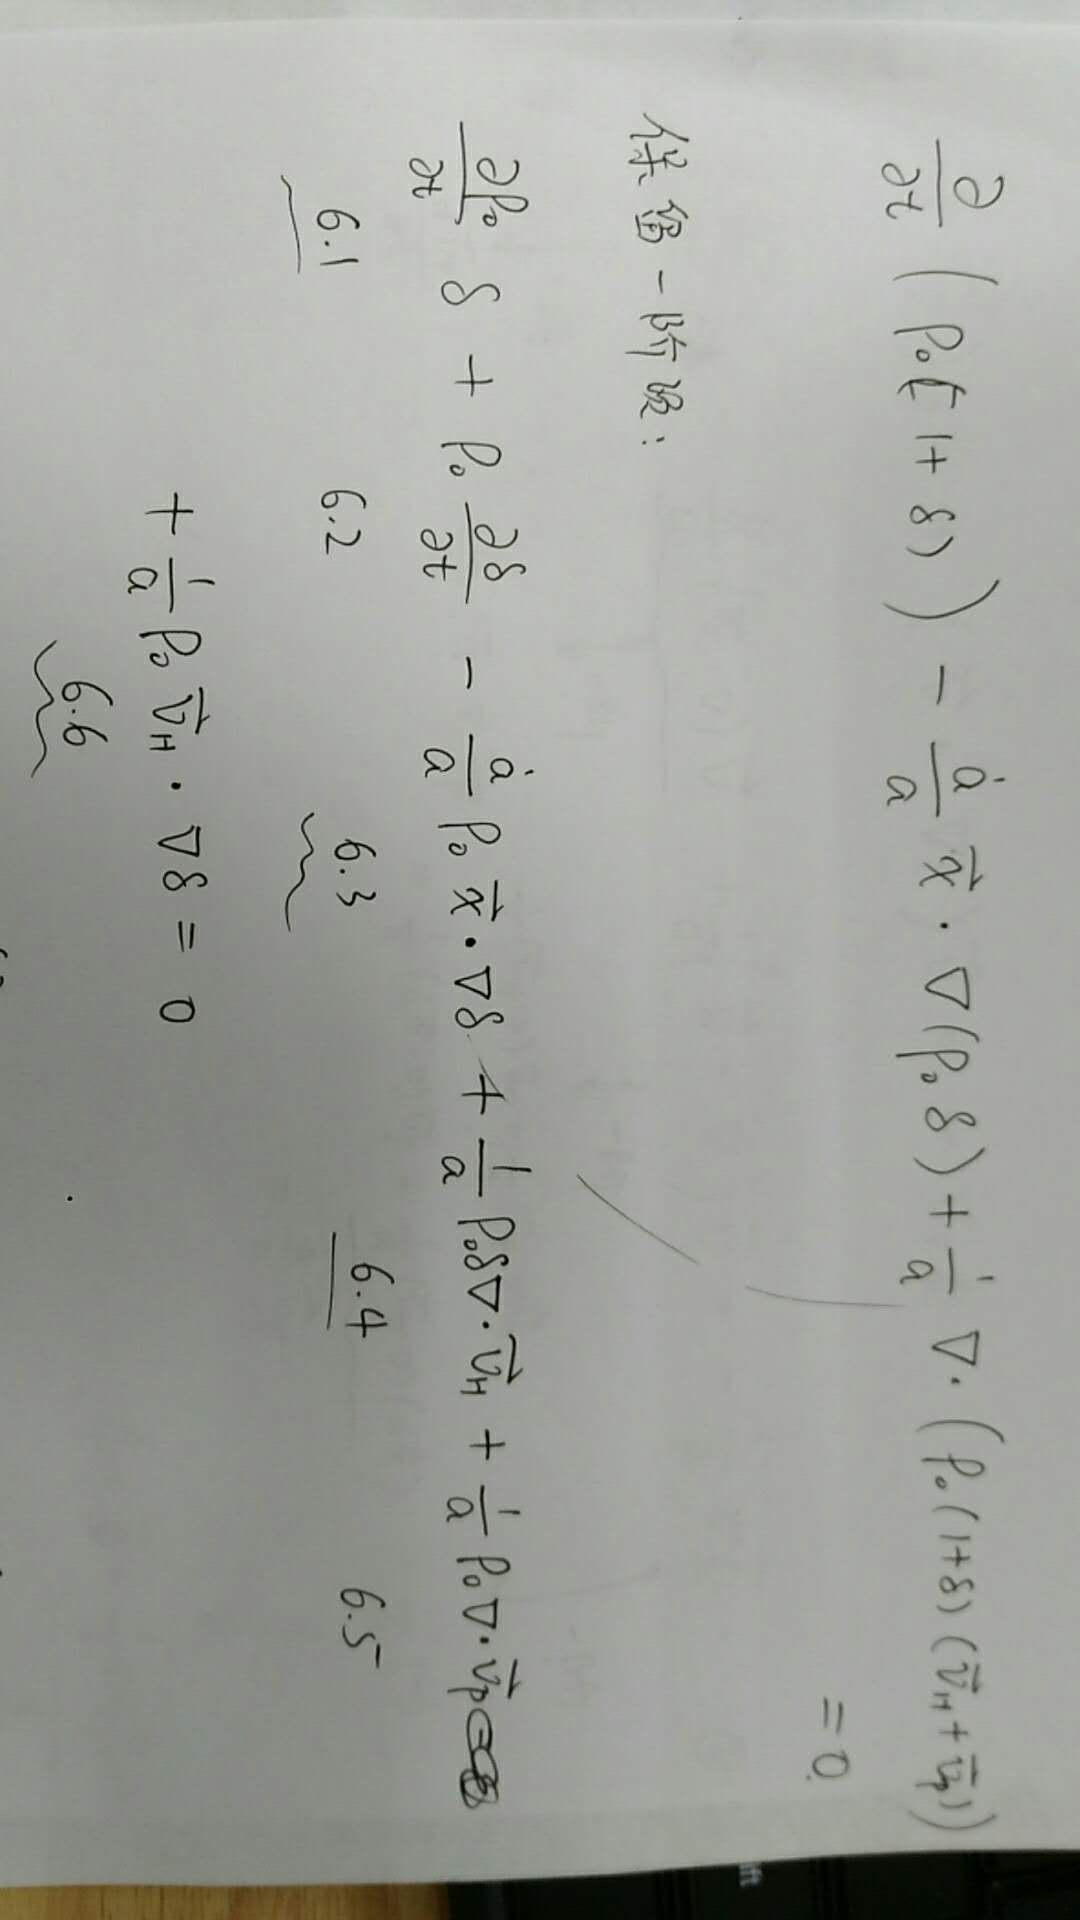 ∂/∂t ( ρ₀(1+δ) ) − ȧ/a x⃗ · ∇(ρ₀δ) + 1/a ∇·(ρ₀(1+δ)(v⃗_H + v⃗_p))
= 0
保留一阶项:
∂ρ₀/∂t δ + ρ₀ ∂δ/∂t − ȧ/a ρ₀ x⃗·∇δ + 1/a ρ₀δ∇·v⃗_H + 1/a ρ₀∇·v⃗_p
6.1 6.2 6.3 6.4 6.5
+ 1/a ρ₀ v⃗_H · ∇δ = 0
6.6